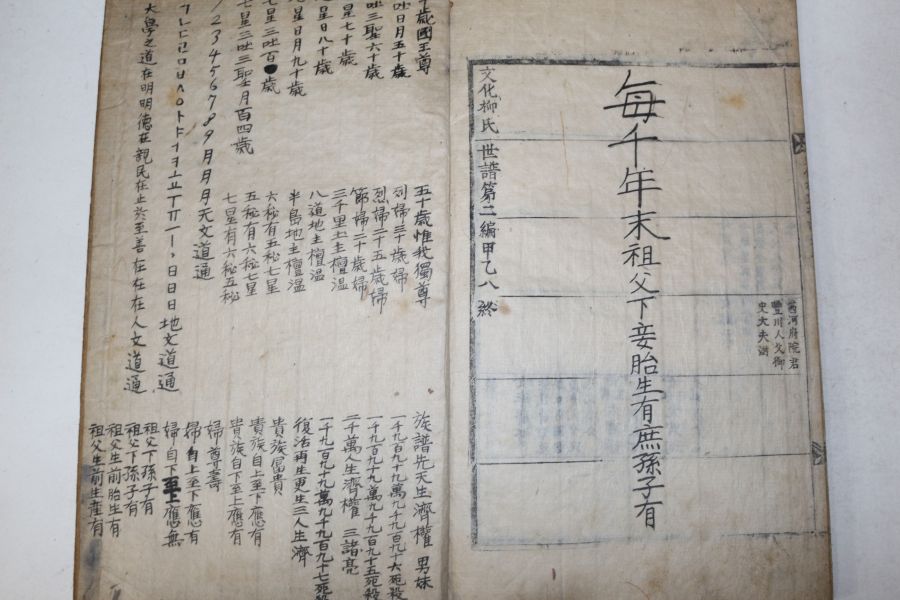 豐川人父御
史大夫洪
每千年末祖父下妾胎生有庶孫子有
文化柳氏 世譜第二編甲乙八終
十歲國王尊
吐日月五十歲
吐三聖六十歲
星七十歲
星日八十歲
星日月九十歲
七星三吐百●歲
七星三吐三聖月百四歲
123456789月月月天文道通
ㄱㄴㄷㄹㅁㅂㅅㅇㅏㅑㅓㅕㅗㅛㅜㅠㅡㅣ、日日日地文道通
大學之道在明明德在親民在止於至善在在在人文道通
五十歲惟我獨尊
烈婦三十歲婦
烈婦二十五歲婦
節婦二十歲婦
三千里土主檀溫
八道地主檀溫
半島地主檀溫
六秘有五秘七星
五秘有六秘七星
七星有六秘五秘
族譜先天生濟權 男妹
一千九百九十九萬九千九百九十六死殺
一千九百九十九萬九千九百九十五死殺
二千萬人生濟權 三諸亮
一千九百九十九萬九千九百九十七死殺
復活再生更生三人生濟
貴族富貴
貴族自上至下應有
貴族自下至上應有
婦尊壽
婦自上至下應有
婦自下至上應無
祖父下孫子有
祖父下孫子有
祖父生前胎生有
祖父生前生產有